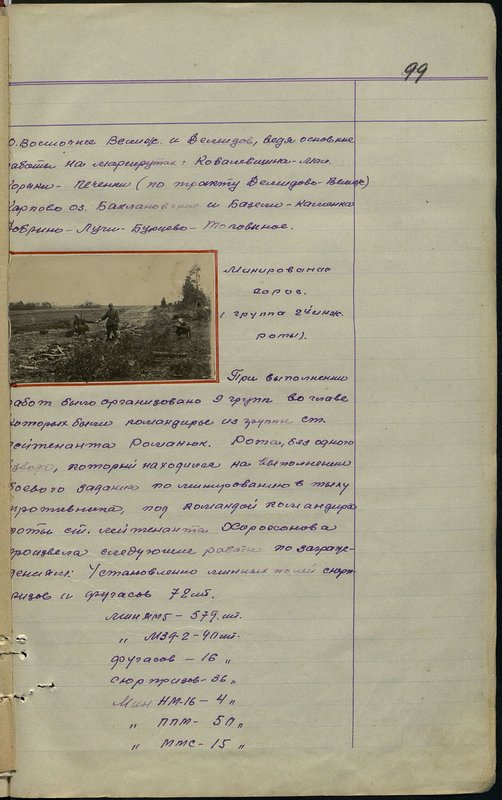 99
О. Восточнее Велиж. и Демидов, ведя основные
работы на маршрутах: Ковалевщина - Мал.
- Печенки (по тракту Демидово - Велиж)
Карпово оз. Баклановское и - Каменка
- Луги - Бурцево -
Минирование
дорог.
(группа 2й инж.
роты).
При выполнении
работ было организовано 9 групп во главе
которых были командиры из группы ст.
лейтенанта Романюк. Рота, без одного
взвода, который находился на выполнении
боевого задания по минированию в тылу
противника, под командой командира
роты ст. лейтенанта
произвела следующие работы по заграж-
дениям: Установлено минных полей сюрп-
ризов и фугасов 72 шт.
мин ЯМ5 - 579 шт.
„ МЗФ-2 - шт.
фугасов - 16 „
сюрпризов - 36 „
Мин НМ-16 - 4 „
„ ППМ - „
„ ММС - 15 „